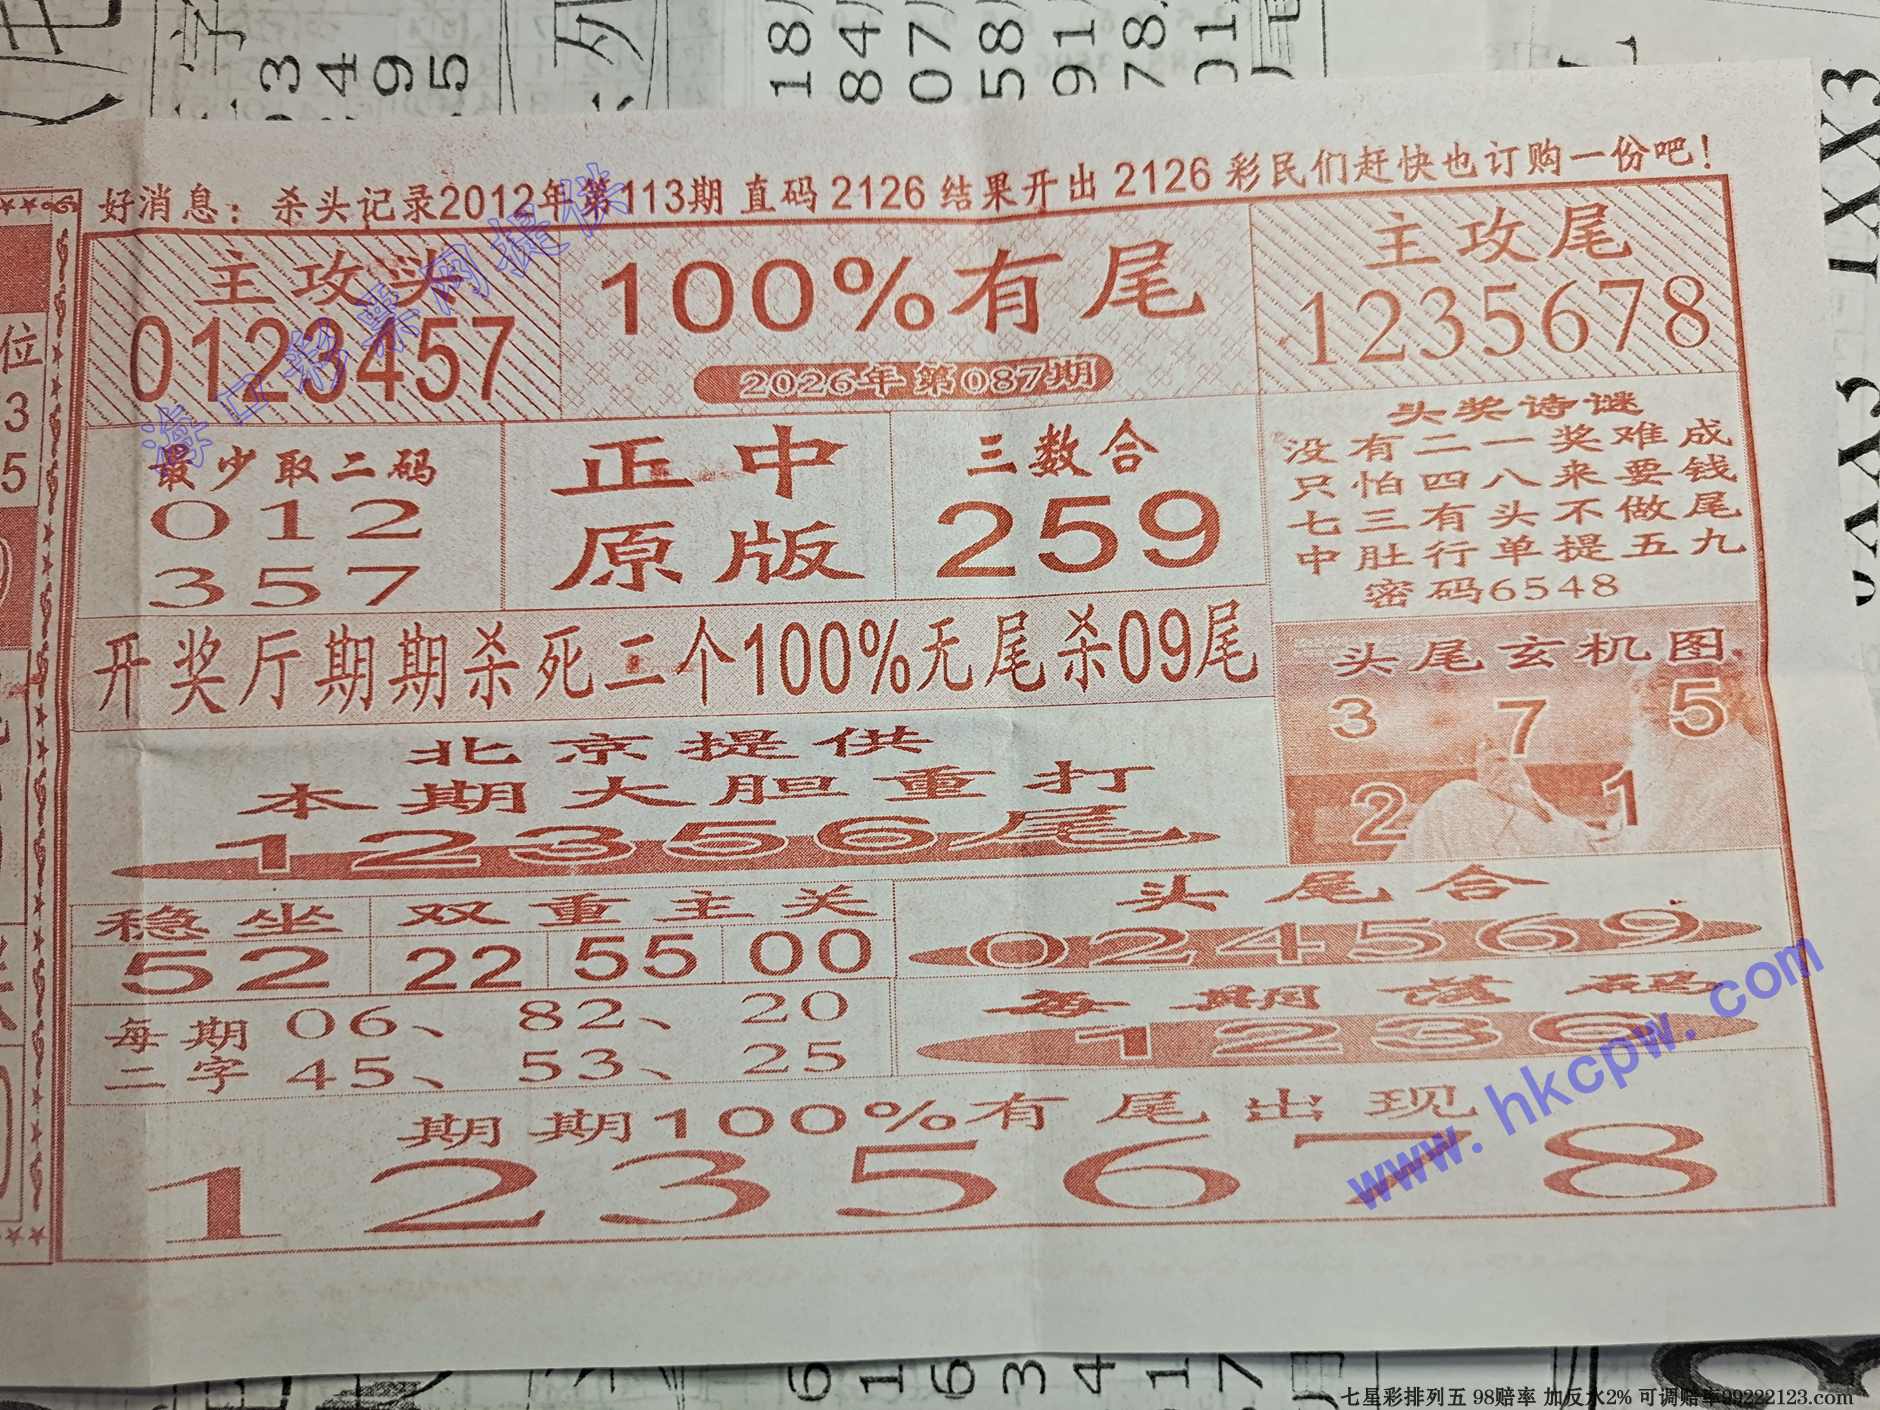 好消息：杀头记录2012年第113期 直码 2126 结果开出 2126 彩民们赶快也订购一份吧！
主攻头
0123457
100%有尾
2026年第087期
主攻尾
1235678
最少取二码
012
357
正中
原版
三数合
259
头奖诗谜
没有二一奖难成
只怕四八来要钱
七三有头不做尾
中肚行单提五九
密码6548
开奖厅期期杀死二个100%无尾杀09尾
头尾玄机图
3 7 5
2 1
北京提供
本期大胆重打
12356尾
稳坐
52
双重主关
22 55 00
头尾合
024569
每期二字
06、 82、 20
45、 53、 25
每期落码
1236
期期100%有尾出现
1235678
海口彩票网提供
www.hkcpw.com
位
3
5
3
4
9
5
18/
84/
07/
58/
91/
78.
01.
1XX3
6
1
6
3
4
1
7
七星彩排列五 98赔率 加反水2% 可调赔率99222123.com